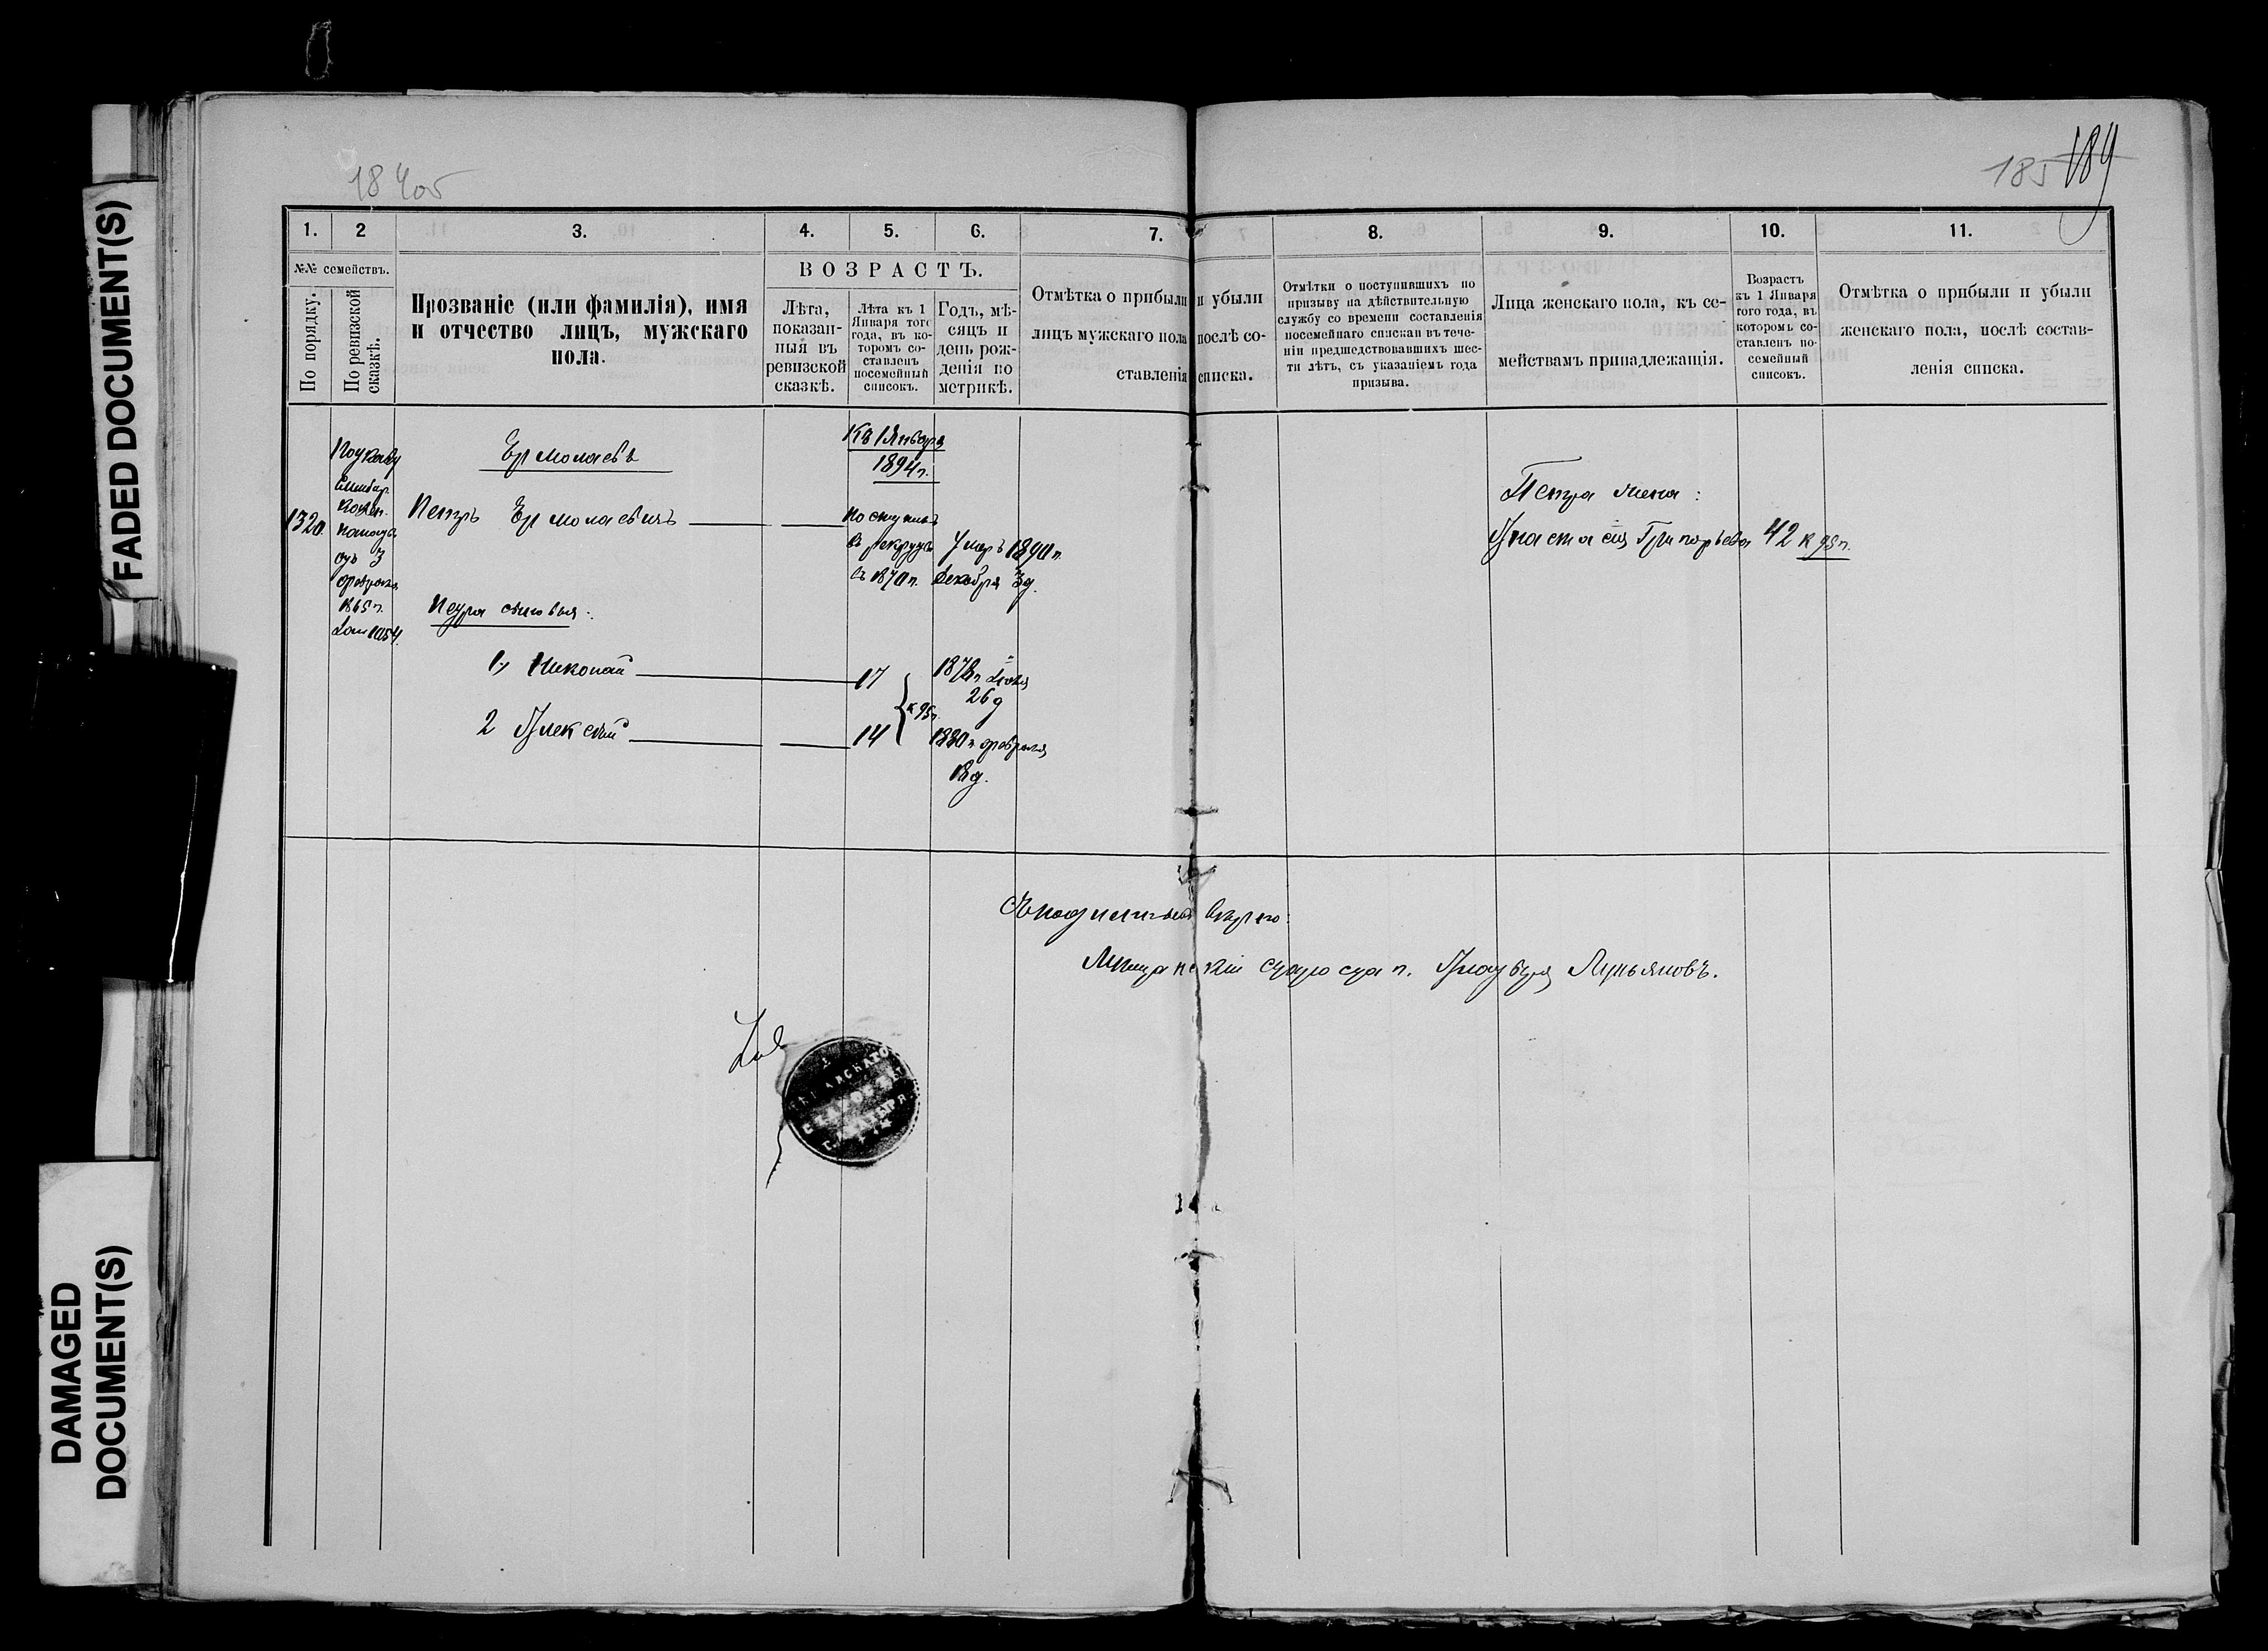 FADED DOCUMENT(S)
DAMAGED
DOCUMENT(S)
184об
185 189
1. 2 3. 4. 5. 6. 7. 8. 9. 10. 11.
№№ семействъ.
По порядку.
По ревизской
сказкѣ.
Прозваніе (или фамилія), имя
и отчество лицъ, мужскаго
пола.
ВОЗРАСТЪ.
Лѣта,
показан-
ныя въ
ревизской
сказкѣ.
Лѣта къ 1
Января того
года, въ ко-
торомъ со-
ставленъ
посемейный
списокъ.
Годъ, мѣ-
сяцъ и
день рож-
денія по
метрикѣ.
Отмѣтка о прибыли и убыли
лицъ мужскаго пола послѣ со-
ставленія списка.
Отмѣтки о поступившихъ по
призыву на дѣйствительную
службу со времени составленія
посемейнаго списка въ тече-
ніи предшедствовавшихъ шес-
ти лѣтъ, съ указаніемъ года
призыва.
Лица женскаго пола, къ се-
мействамъ принадлежащія.
Возрастъ
къ 1 Января
того года, въ
которомъ со-
ставленъ по-
семейный
списокъ.
Отмѣтка о прибыли и убыли
женскаго пола, послѣ состав-
ленія списка.
1320.
По указу
Симбир.
Казен.
Палаты
отъ 3
февраля
1865 г.
1054.
Ермолаевъ
Къ 1 Января
1894 г.
Петръ Ермолаевичъ
поступилъ
въ рекруты
въ 1870 г.
Умеръ 1890 г.
декабря 3 д.
Петра сыновья:
1, Николай 17
к 95 г.
26 д
2 Алексѣй 14
1880 г. февраля
18 д.
Петра жена:
Анастасія Григорьева 42 к 95 г.
Съ подлиннымъ вѣрно:
Мѣщанскій староста
Лукьяновъ.